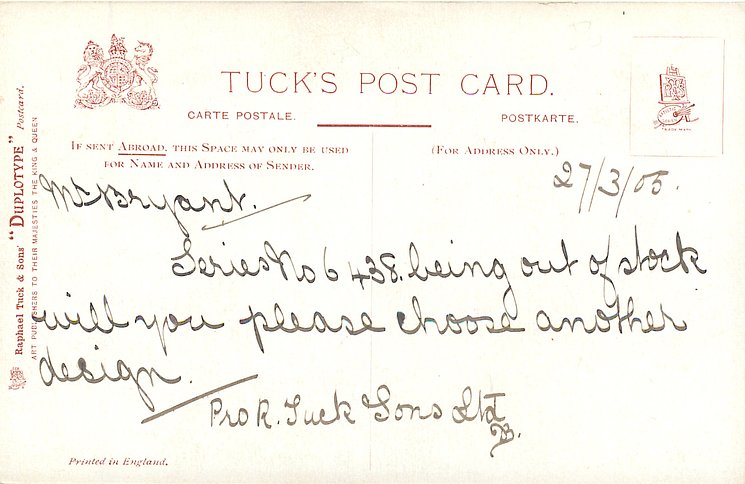 TUCK'S POST CARD.
CARTE POSTALE.
POSTKARTE.
IF SENT ABROAD, THIS SPACE MAY ONLY BE USED
FOR NAME AND ADDRESS OF SENDER.
(FOR ADDRESS ONLY.)
27/3/05.
Mr Bryant.
Series No 6438. being out of stock
will you please choose another
design.
Pro R. Tuck Sons Ltd
B.
Printed in England.
Raphael Tuck & Sons' "DUPLOTYPE" Postcard.
ART PUBLISHERS TO THEIR MAJESTIES THE KING & QUEEN
TRADE MARK